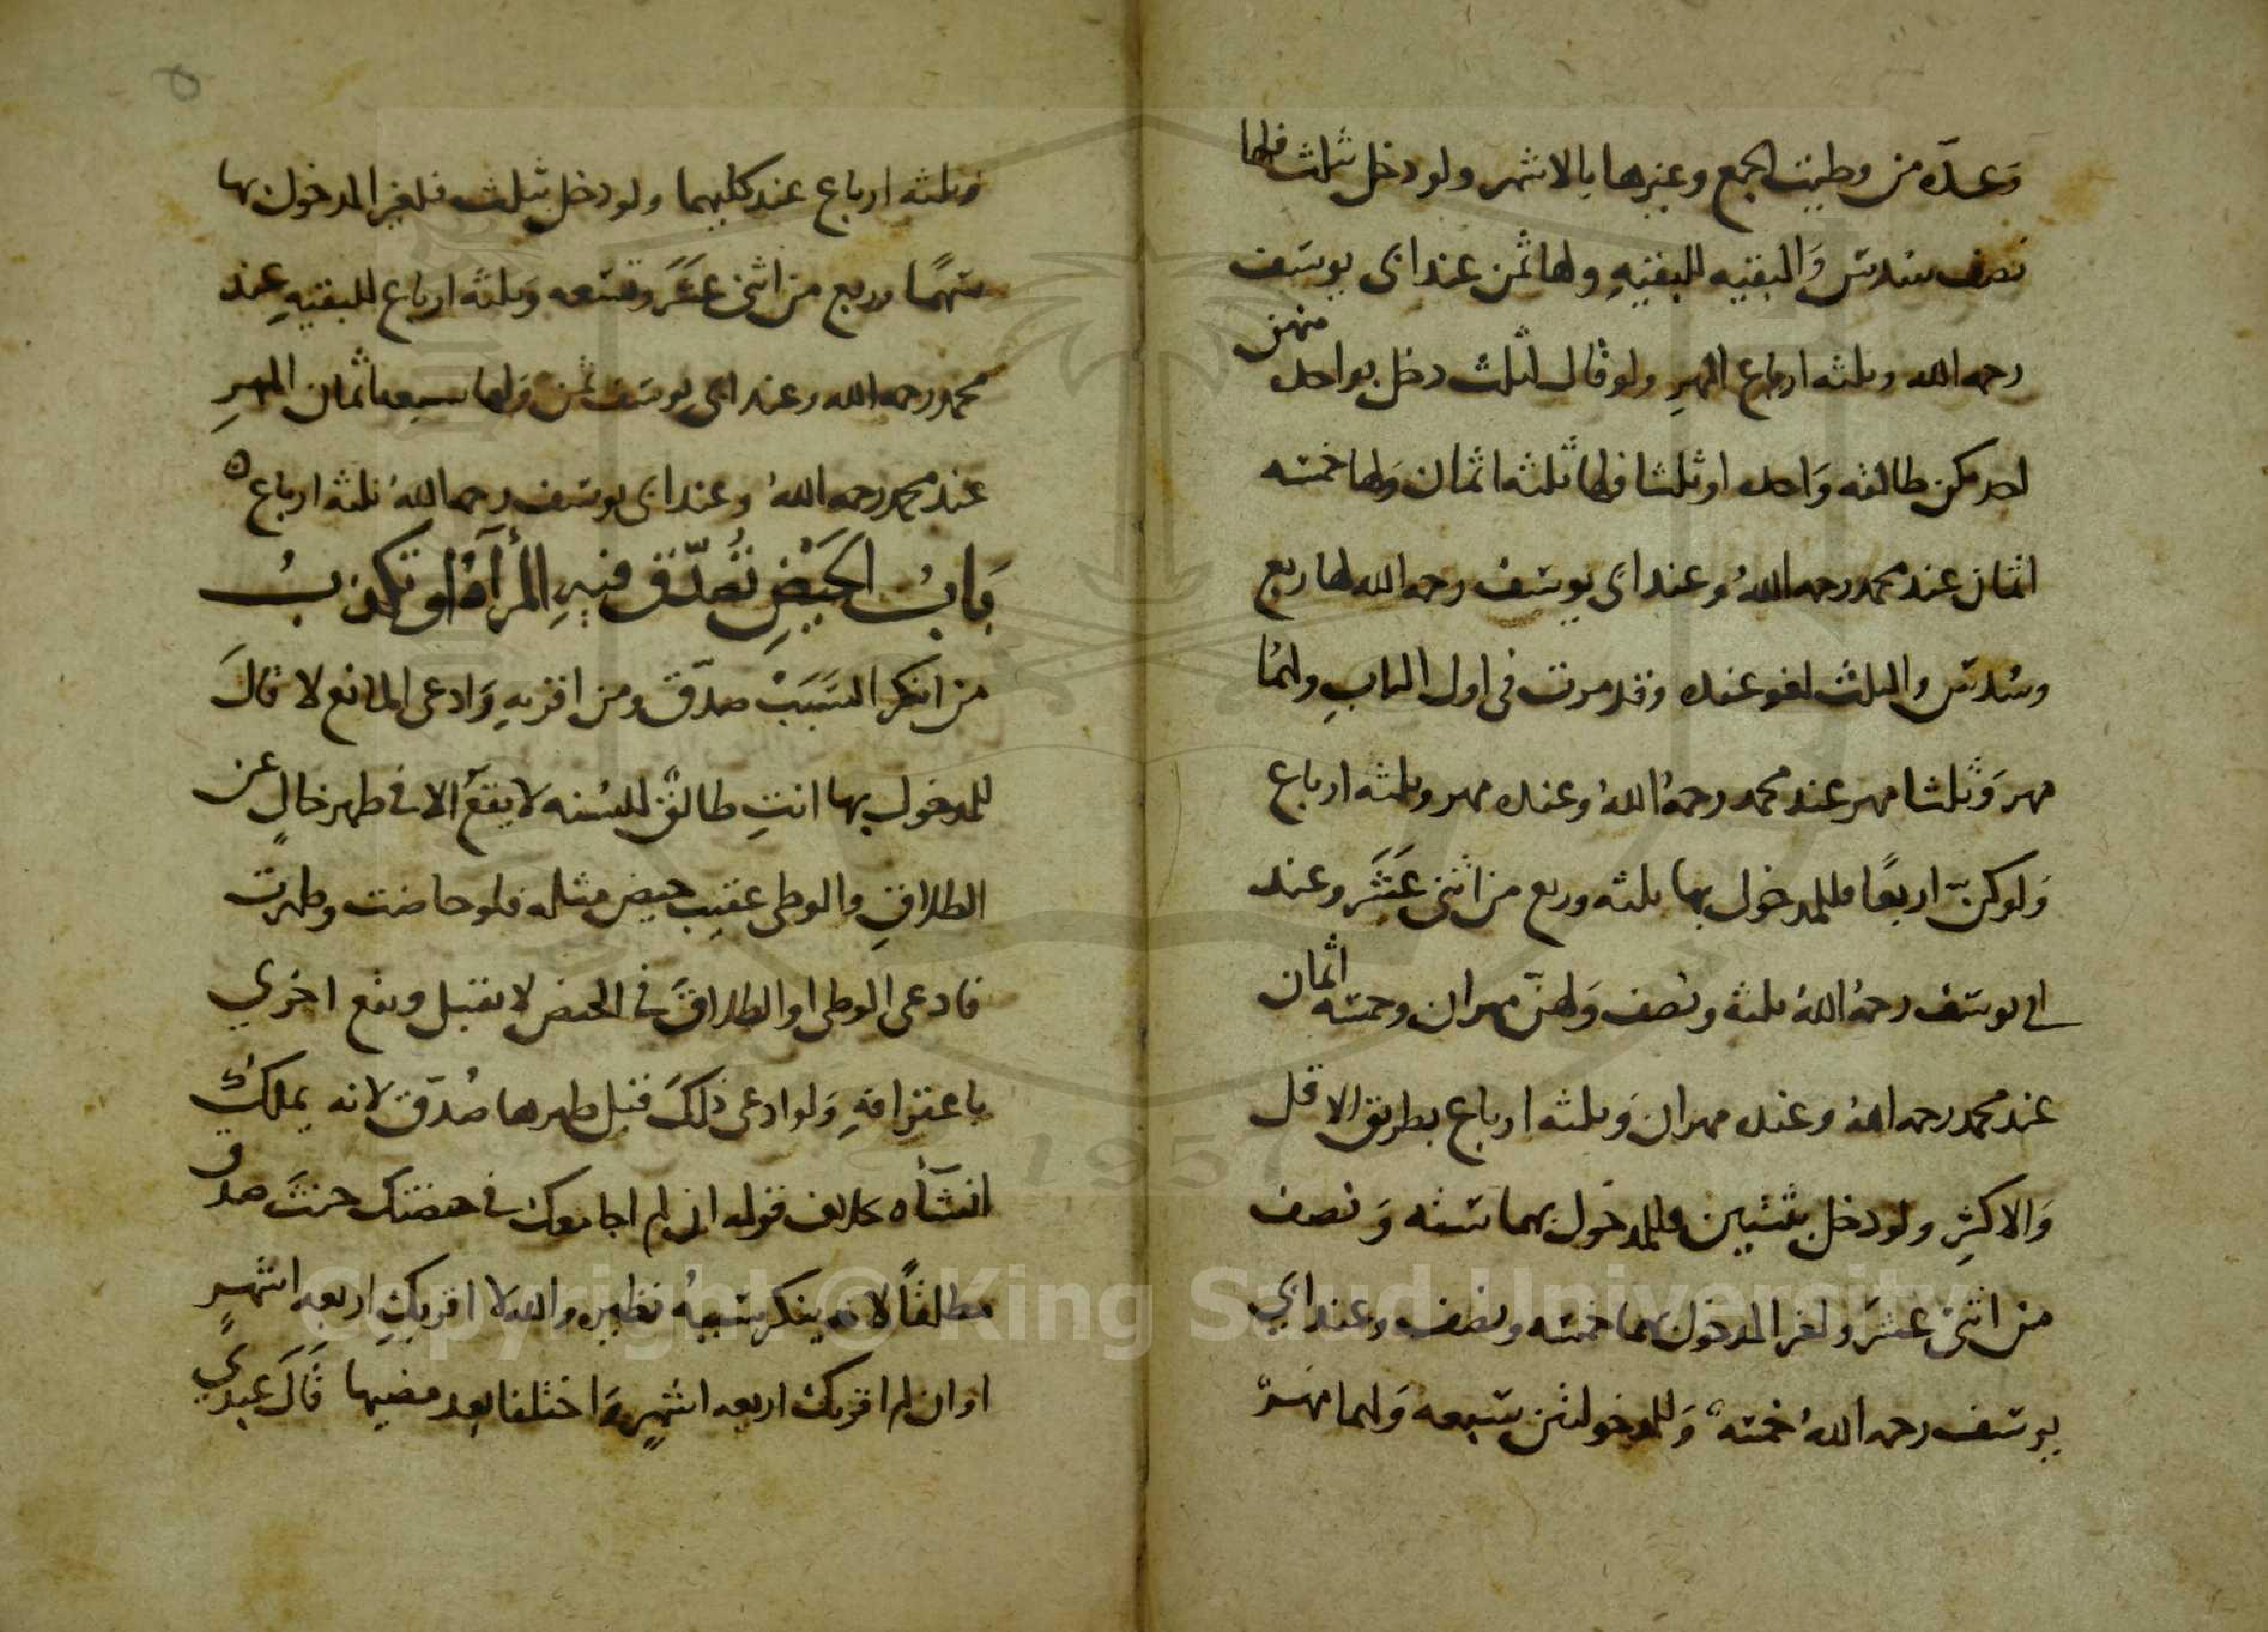 وعدة من وطيت الجمع وغيرها بالاشهر ولو دخل بثلث فلها
نصف سدس والبقيه للبقيه ولها ثمن عند ابى يوسف
رحمه الله وثلثه ارباع المهر ولو قال لثلث دخل بواحدة منهن
احدىكن طالقه واحده او ثلثا فلها ثلثه اثمان ولها خمسه
اثمان عند محمد رحمه اللهُ وعند ابى يوسف رحمه الله لها ربع
وسُدس والثلث لغو عنده وقد مرت فى اول الباب ولهما
مهر وثلثا مهر عند محمد رحمه اللهُ وعنده مهر وثلثه ارباع
ولو كنّ اربعًا فللمدخول بها ثلثه وربع من اثنى عَشَر وعند
ابى يوسف رحمه اللهُ ثلثه ونصف ولهنّ مهران وخمسه اثمان
عند محمد رحمه الله وعنده مهران وثلثه ارباع بطريق الاقل
والاكثر ولو دخل بثنتين فللمدخول بهما سته ونصف
من اثنى عشر ولغير المدخول بهما خمسه ونصف وعند ابي
يوسف رحمه اللهُ خمسه وللمدخولتين سبعه ولهما مهر
وثلثه ارباع عند كليهما ولو دخل بثلث فلغير المدخول بها
سهمًا وربع من اثنى عَشَر وتسعه وثلثه ارباع للبقيهِ عند
محمد رحمه الله وعند ابى يوسف ثمن ولها سبعه اثمان المهرِ
عند محمد رحمه اللهُ وعند ابى يوسف رحمه اللهُ ثلثه ارباع ه
بَابُ الحَيْضِ تُصَدَّق فيهِ المرأةُ او تكذبُ
من انكر السَبَبَ صدّق ومن اقر بهِ وَادعى المانع لا قالَ
للمدخول بها انتِ طالقٌ للسُنه لا يقعُ الا فى طهر خالٍ عن
الطلاقِ والوطى عقيب حيض مثله فلو حاضت وطهرت
فادعى الوطى او الطلاقَ فى الحيض لا يقبل ويقع اخري
باعترافهِ وَلو ادعى ذلكَ قبل طهرها صُدّق لانه يملك
انشآه بخلاف قوله ان لم اجامعك فى حيضتك حيث صدق
مطلقًا لانه ينكر سببهُ نظيره والله لا اقربكِ اربعه اشهرٍ
او ان لم اقربك اربعه اشهرٍ وَاختلفا بعد مضيها قَالَ عبدي